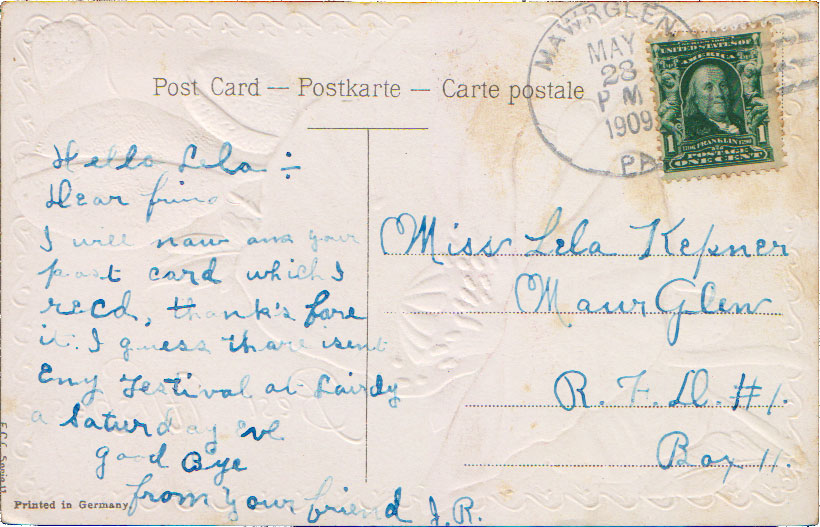 Post Card — Postkarte — Carte postale
MAWRGLEN
MAY
28
P M
1909
PA
UNITED STATES OF
AMERICA
1706 FRANKLIN 1790
1 1
POSTAGE
ONE CENT
Hello Lela ÷
Dear
I will now ans your
post card which I
recd, thank's fore
it. I guess thare isent
Eny Festival at Lairdy
a Saturday eve
good Bye
from your friend J.R.
Miss Lela Kepner
Mawr Glen
R. F. D. #1.
Box 11.
Printed in Germany